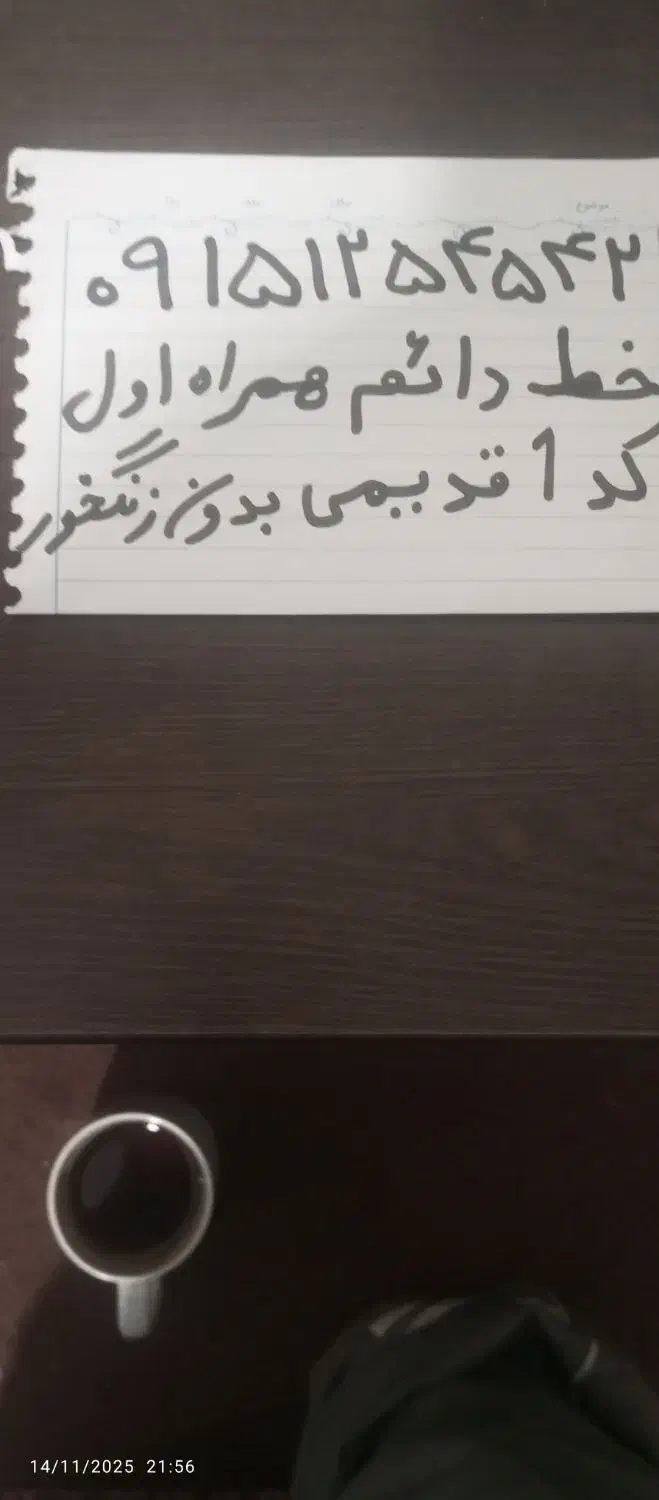 موضوع
۰۹۱۵۱۲۵۴۵۴۲
خط دائم همراه اول
کد 1 قدیمی بدون زنگخور
14/11/2025 21:56